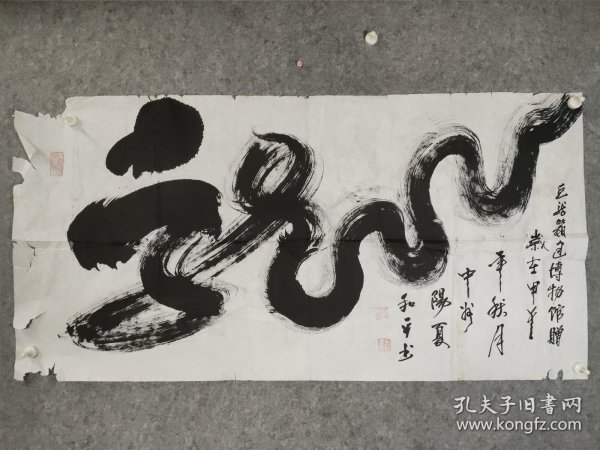 龙
建博物馆贈
歲在甲午
年秋月
中州
陽夏
和平书
孔夫子旧书网
www.kongfz.com